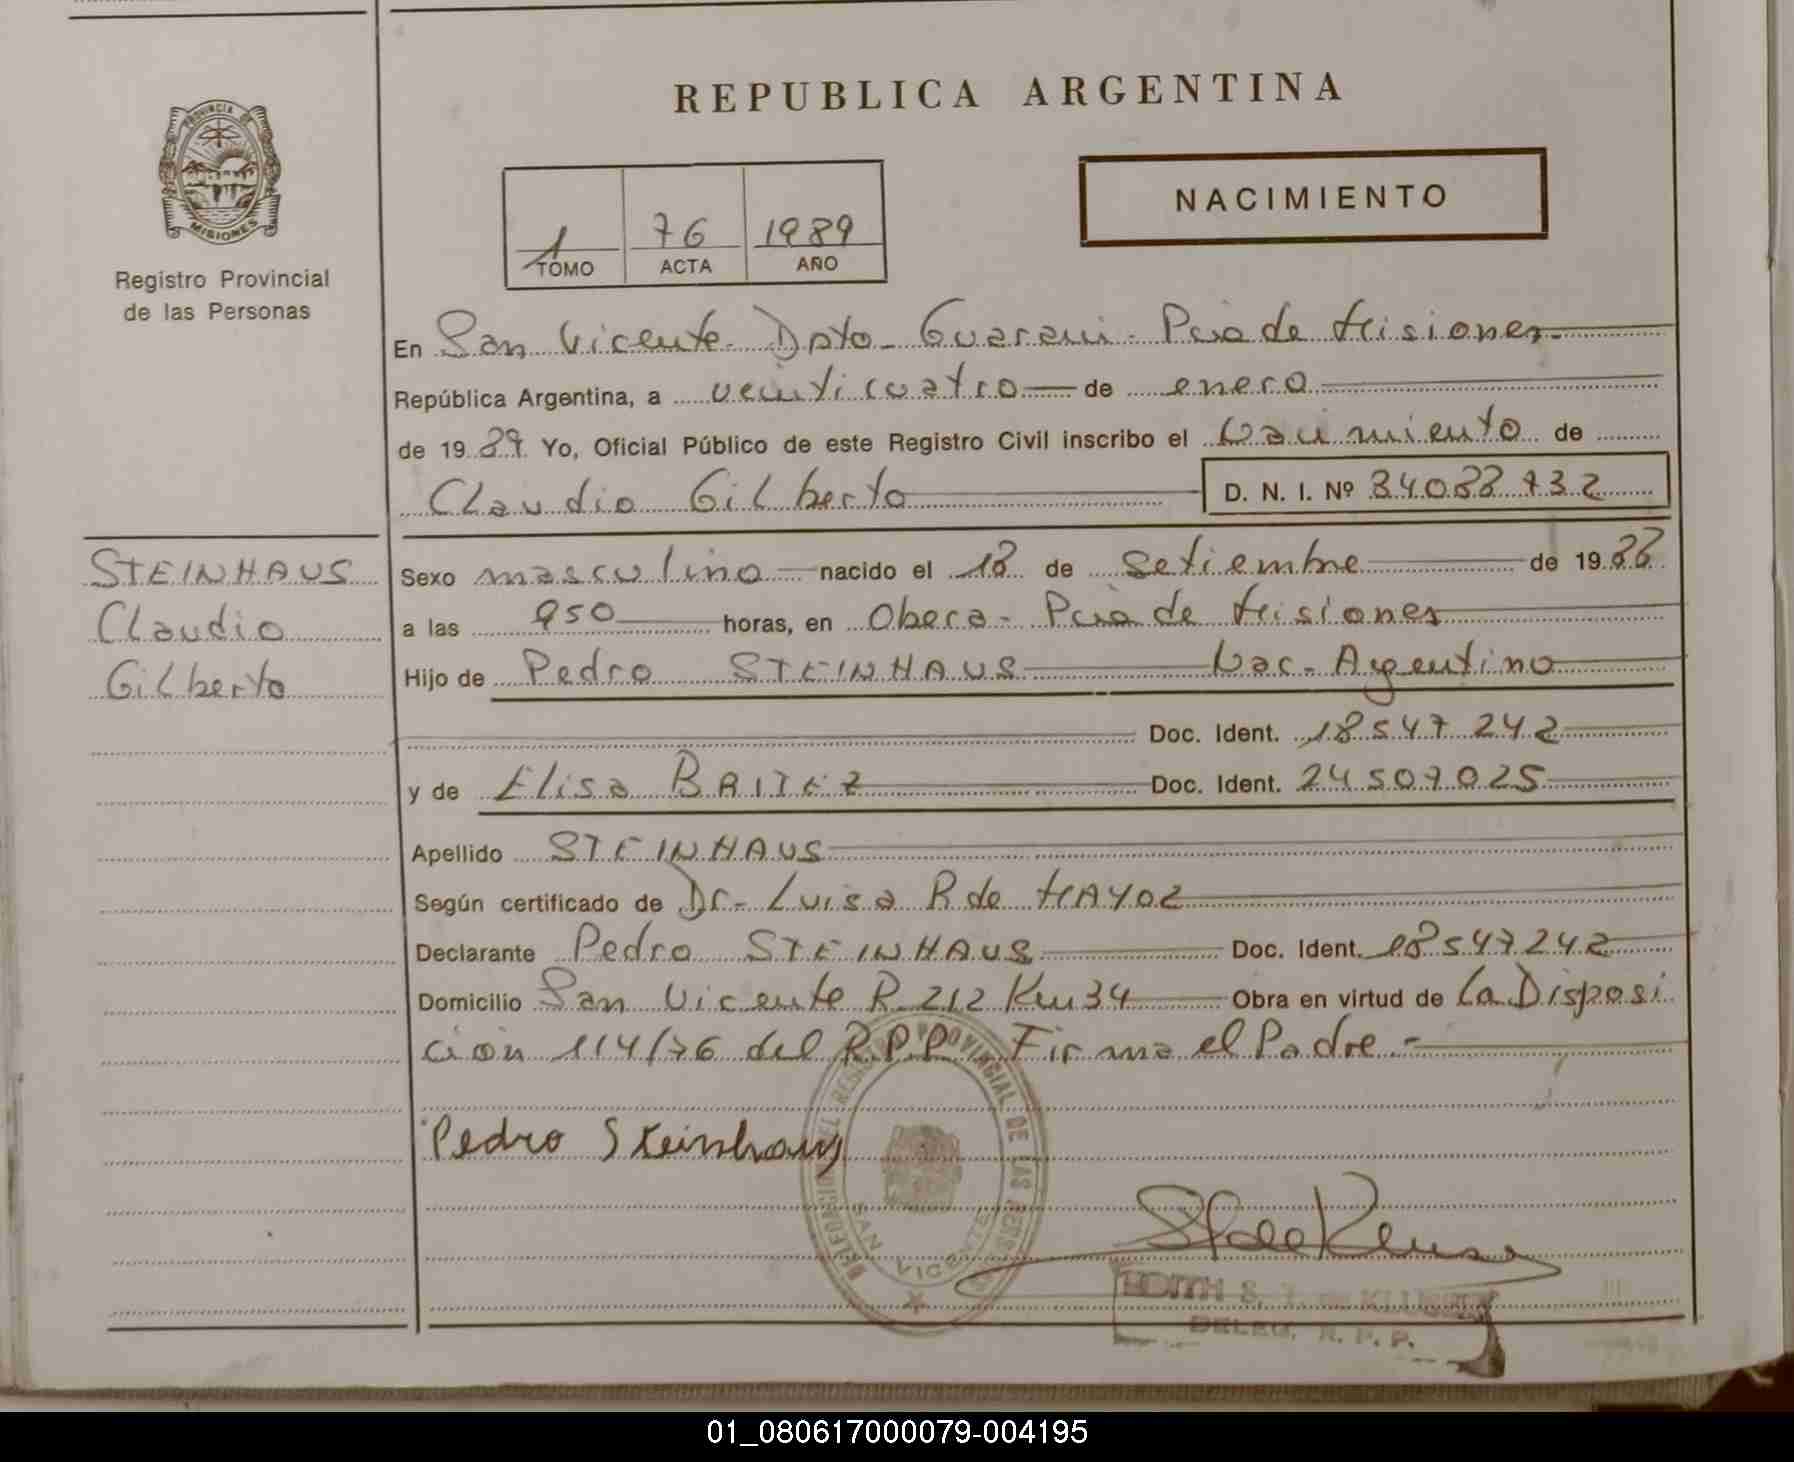 REPUBLICA ARGENTINA
PROVINCIA DE
MISIONES
Registro Provincial
de las Personas
1 76 1989
TOMO ACTA AÑO
NACIMIENTO
En San Vicente - Dpto - Guarani - Pcia de Misiones -
República Argentina, a veinticuatro de enero
de 1989 Yo, Oficial Público de este Registro Civil inscribo el Nacimiento de
Claudio Gilberto D. N. I. Nº
STEINHAUS
Claudio
Gilberto
Sexo masculino nacido el 18 de Setiembre de 1988
a las 950 horas, en Obera - Pcia de Misiones
Hijo de Pedro STEINHAUS Nac - Argentino
Doc. Ident. 18547242
y de Elisa BAITEZ Doc. Ident. 24507025
Apellido STEINHAUS
Según certificado de Dr - Luisa R de HAYOZ
Declarante Pedro STEINHAUS Doc. Ident. 18547242
Domicilio San Vicente R 212 Km 34 Obra en virtud de La Disposi
ción 114/76 del R.P.P. Firma el Padre -
Pedro Steinhaus
DEL REGISTRO PROVINCIAL DE LAS PERSONAS
SAN VICENTE
EDITH S.
DELEG. R. P. P.
01_080617000079-004195